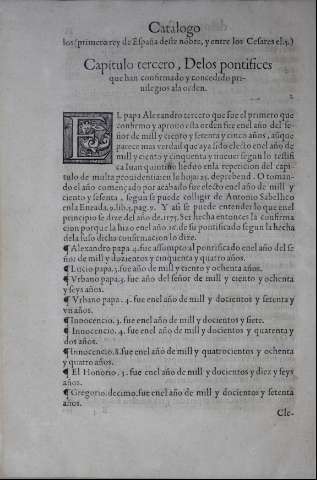 Catalogo
los (primero rey de España deste nobre, y entre los Cesares el.5.)
Capitulo tercero, Delos pontifices
que han confirmado y concedido pri-
uilegios ala orden.
EL papa Alexandro tercero que fue el primero que
confirmo y aprouo esta orden fue enel año del se-
ñor de mill y ciento y setenta y cinco años, aũque
parece mas verdad que aya sido electo enel año de
mill y ciento y cinquenta y nueue: segun lo testifi
ca Iuan quintino heduo enla repeticion del capi-
tulo de multa prouidentia: en la hoja: 25. de prebend. O toman-
do el año començado por acabado fue electo enel año de mill y
ciento y sesenta, segun se puede colligir de Antonio Sabellico
en la Eneada. 9. lib. 5. pag. 9. Y ansi se puede entender lo que enel
principio se dize del año de. 1175. Ser hecha entonces la confirma
cion porque la hizo enel año 16. de su pontificado segun la hecha
dela suso dicha confirmacion lo dize.
¶ Alexandro papa. 4. fue assumpto al pontificado enel año del se
ñor de mill y dozientos y cinquenta y quatro años.
¶ Lucio papa. 3. fue año de mill y ciento y ochenta años.
¶ Vrbano papa. 3. fue año del señor de mill y ciento y ochenta
y seys años.
¶ Vrbano papa. 4. fue enel año de mill y docientos y setenta y
vn años.
¶ Innocencio. 3. fue enel año de mill y docientos y siete.
¶ Innocencio. 4. fue enel año de mill y docientos y quarenta y
dos años.
¶ Innocencio. 8. fue enel año de mill y quatrocientos y ochenta
y quatro años.
¶ El Honorio. 3. fue enel año de mill y docientos y diez y seys
años.
¶ Gregorio: decimo. fue enel año de mill y docientos y setenta
años.
Cle-